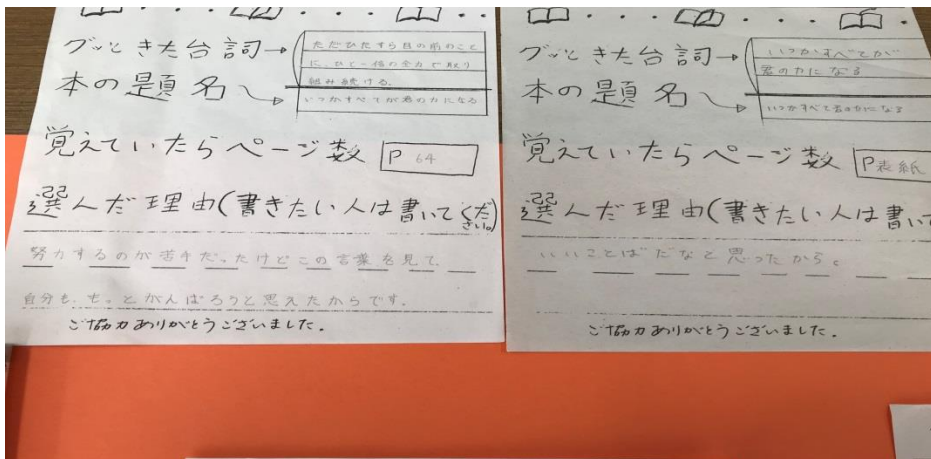 グッときた台詞→
ただひたすら目の前のこと
に、ひと一倍の全力で取り
組み続ける。
本の題名
いつかすべてが君の力になる
覚えていたらページ数 P 64
選んだ理由(書きたい人は書いてください。)
努力するのが苦手だったけどこの言葉を見て、
自分も、もっとがんばろうと思えたからです。
ご協力ありがとうございました。
グッときた台詞→
いつかすべてが
君の力になる
本の題名
いつかすべて君の力になる
覚えていたらページ数 P表紙
選んだ理由(書きたい人は書いて
いいことばだなと思ったから。
ご協力ありがとうございました。